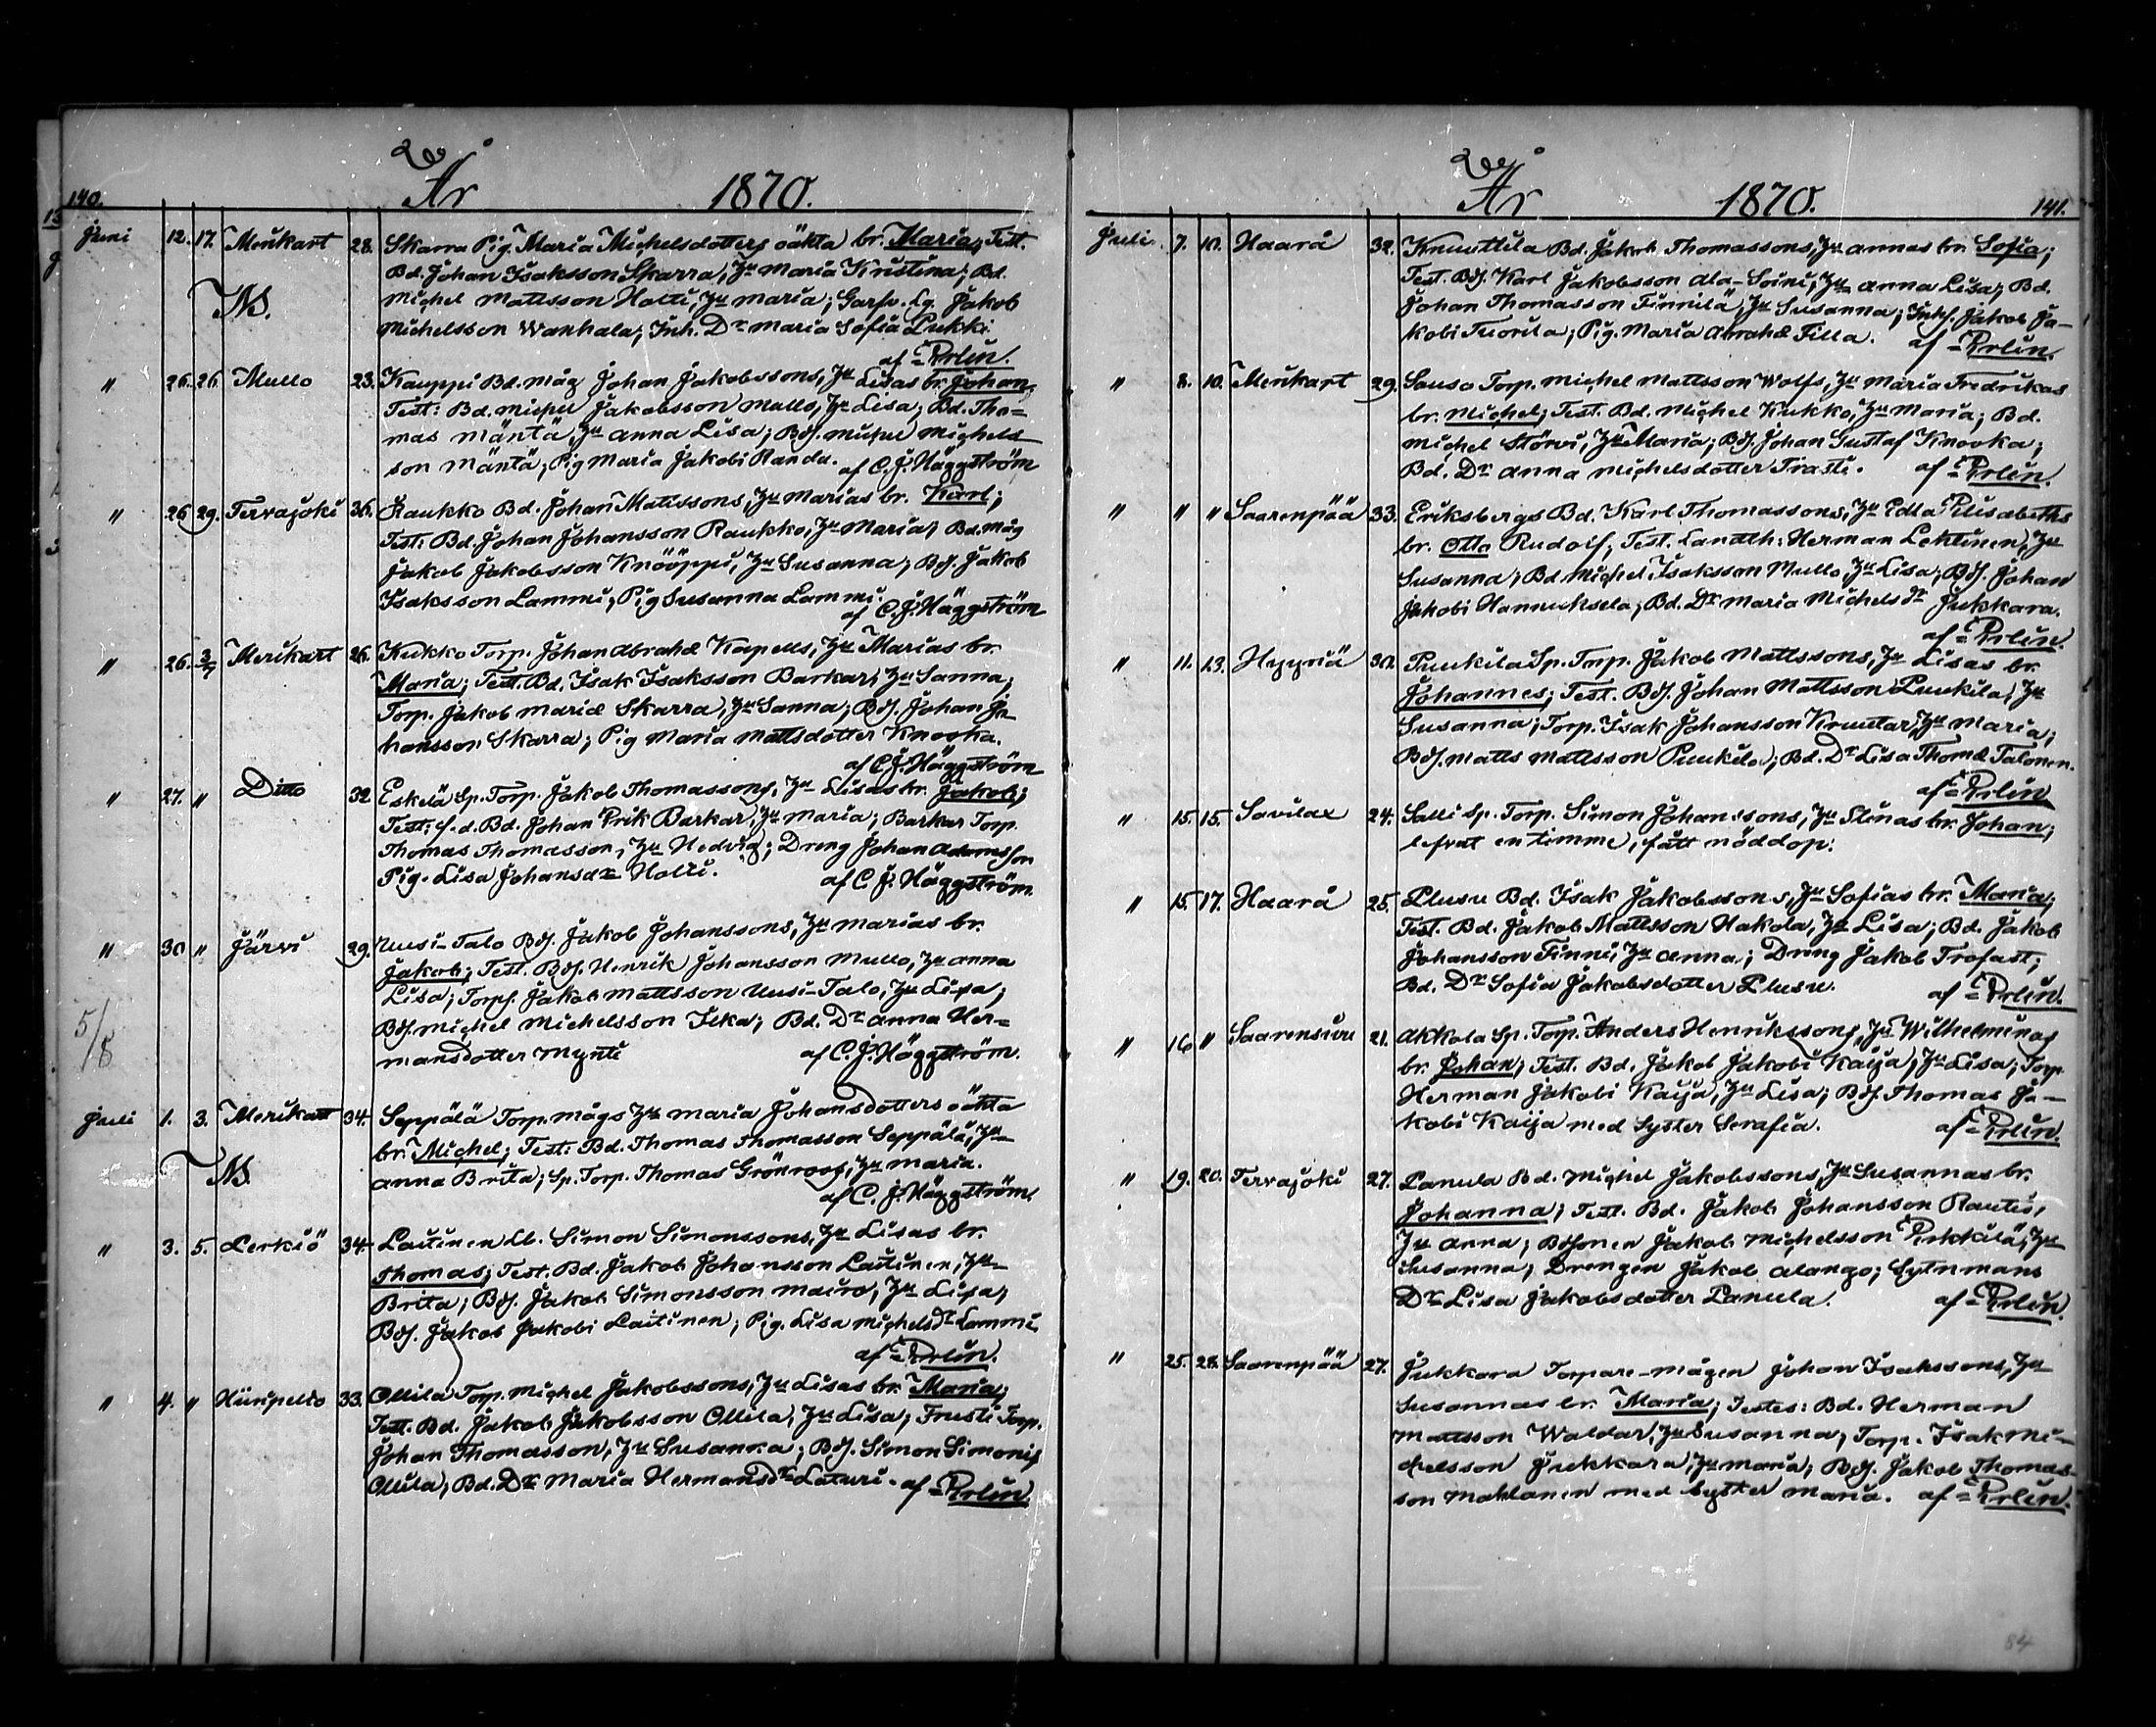 140. År 1870.
Juni 12. 17. Merikart 28. Skarra Pig. Maria Michelsdotters oäkta br. Maria; Test.
Bd. Johan Isaksson Skarra, Hu Maria Kristina; Bd.
NB. Michel Mattsson Holti, Hu Maria; Garfv. Lg. Jakob
Michelsson Wanhala; Inh. Dr Maria Sofia Lukki
af Erlin.
" 26. 26. Mullo 23. Kauppi Bd. måg Johan Jakobssons, Hu Lisas br. Johan,
Test: Bd. Michel Jakobsson Mullo, Hu Lisa; Bd. Tho=
mas Mäntä, Hu Anna Lisa; Bdf. Michel Michels
son Mäntä; Pig Maria Jakobi Randa. af C. J. Häggström
" 26 29. Tervajoki 36. Raukko Bd. Johan Mattssons, Hu Marias br. Karl;
Test: Bd. Johan Johansson Raukko, Hu Maria; Bd. måg
Jakob Jakobsson Knööppi, Hu Susanna; Bdf. Jakob
Isaksson Lammi, Pig Susanna Lammi.
af C. J. Häggström
" 26. 3/7 Merikart 26. Kukko Torp. Johan Abrahd Kapells, Hu Marias br.
Maria; Test. Bd. Isak Isaksson Barkar, Hu Sanna;
Torp. Jakob Skarra, Hu Sanna; Bdf. Johan Jo
hansson Skarra; Pig Maria Mattsdotter Knooka.
af C. J. Häggström
" 27. " Ditto 32 Eskelä Sp. Torp. Jakob Thomassons, Hu Lisas br. Jakob;
Test: f.d. Bd. Johan Erik Barkar, Hu Maria; Barkar Torp.
Thomas Thomasson, Hu Hedvig; Dreng Johan Adamsson
Pig. Lisa Johansdr Holti. af C. J. Häggström.
" 30 " Järvi 29. Uusi-Talo Bdf. Jakob Johanssons, Hu Marias br.
Jakob; Test. Bdf. Henrik Johansson Mullo, Hu Anna
Lisa; Torpf. Jakob Mattsson Uusi-Talo, Hu Lisa;
5/8 Bdf. Michel Michelsson Ilka; Bd. Dr Anna Her=
mansdotter Mynti af C. J. Häggström.
Juli 1. 3. Merikart 34. Seppälä Torp. mågs Hu Maria Johansdotters oäkta
br. Michel; Test: Bd. Thomas Thomasson Seppälä, Hu
NB. Anna Brita; Sp. Torp. Thomas Grönroos, Hu Maria.
af C. J. Häggström.
" 3. 5. Lerkiö 34. Laitinen Simon Simonssons, Hu Lisas br.
Thomas; Test. Bd. Jakob Johansson Laitinen, Hu
Brita; Bdf. Jakob Simonsson Hu Lisa;
Bdf. Jakob Jakobi Laitinen; Pig. Lisa Michelsdr Lammi
af Erlin.
" 4. " Hiiripelto 33. Ollila Torp. Michel Jakobssons, Hu Lisas br. Maria;
Test. Bd. Jakob Jakobsson Ollila, Hu Lisa; Torp.
Johan Thomasson, Hu Susanna; Bdf. Simon Simonis
Ollila; Bd. Dr Maria Hermansdr Laturi. af Erlin
År 1870. 141.
Juli. 7. 10. Haarå 32. Knuuttila Bd. Jakob Thomassons, Hu Annas br. Sofia;
Test. Bdf. Karl Jakobsson Ala-Soini, Hu Anna Lisa; Bd.
Johan Thomasson Finnilä, Hu Susanna; Inhf. Jakob Ja-
kobi Tuorila; Pig. Maria Abrahd Filla. af Erlin.
" 8. 10. Merikart 29. Sauso Torp. Michel Mattsson Wolfs, Hu Maria Fredrikas
br. Michel; Test. Bd. Michel Kukko, Hu Maria; Bd.
Michel Störvi, Hu Maria; Bdf. Johan Gustaf Knooka;
Bd. Dr Anna Michelsdotter Trasti. af Erlin.
" " " Saarenpää 33. Eriksbergs Bd. Karl Thomassons, Hu Edla Elisabeths
br. Otto Rudolf; Test. Landth: Herman Lehtinen, Hu
Susanna; Bd. Michel Isaksson Mullo, Hu Lisa; Bdf. Johan
Jakobi Hannuksela; Bd. Dr Maria Michelsdr Jukkara.
af Erlin.
" 11. 13. Hyyriä 30. Puukila Sp. Torp. Jakob Mattssons, Hu Lisas br.
Johannes; Test. Bdf. Johan Mattsson Puukila, Hu
Susanna; Torp. Isak Johansson Knuutar, Hu Maria;
Bdf. Matts Mattsson Puukila; Bd. Dr Lisa Thomd Talonen.
af Erlin
" 15. 15. Savilax 24. Salli Sp. Torp. Simon Johanssons, Hu Stinas br. Johan;
lefvat en timme, fått nöddop:
" 15. 17. Haarå 25. Plusu Bd. Isak Jakobssons, Hu Sofias br. Maria;
Test. Bd. Jakob Mattsson Hakola, Hu Lisa; Bd. Jakob
Johansson Finni, Hu Anna; Dreng Jakob Trofast;
Bd. Dr Sofia Jakobsdotter Plusu. af Erlin.
" 16 " Saarensivu 21. Akkola Sp. Torp. Anders Henrikssons, Hu Wilhelminas
br. Johan; Test. Bd. Jakob Jakobi Kaija, Hu Lisa; Torp.
Herman Jakobi Kaija, Hu Lisa; Bdf. Thomas Ja-
kobi Kaija med Syster Serafia. af Erlin.
" 19. 20. Tervajoki 27. Panula Bd. Michel Jakobssons, Hu Susannas br.
Johanna; Test. Bd. Jakob Johansson Rauti,
Hu Anna; Bdsonen Jakob Michelsson Pirkkilä, Hu
Susanna; Drengen Jakob Alango; Sytnmans
Dr Lisa Jakobsdotter Panula. af Erlin.
" 25. 28. Saarenpää 27. Jukkara Torpare-mågen Johan Isakssons, Hu
Susannas br. Maria; Testes: Bd. Herman
Mattsson Waldar, Hu Susanna; Torp. Isak Mi-
chelsson Jukkara, Hu Maria; Bdf. Jakob Thomas-
son Mahlanen med Syster Maria. af Erlin.
84